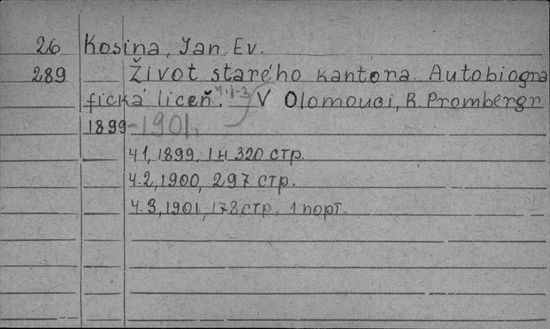 26 Kosina, Jan Ev.
289 Život starého kantora. Autobiogra
fická liceň. Ч.1-3 V Olomouci, R. Prombergr
1899-1901.
Ч.1, 1899, 1н 320 стр.
Ч.2, 1900, 297 стр.
Ч.3, 1901, 178 стр., 1 порт.